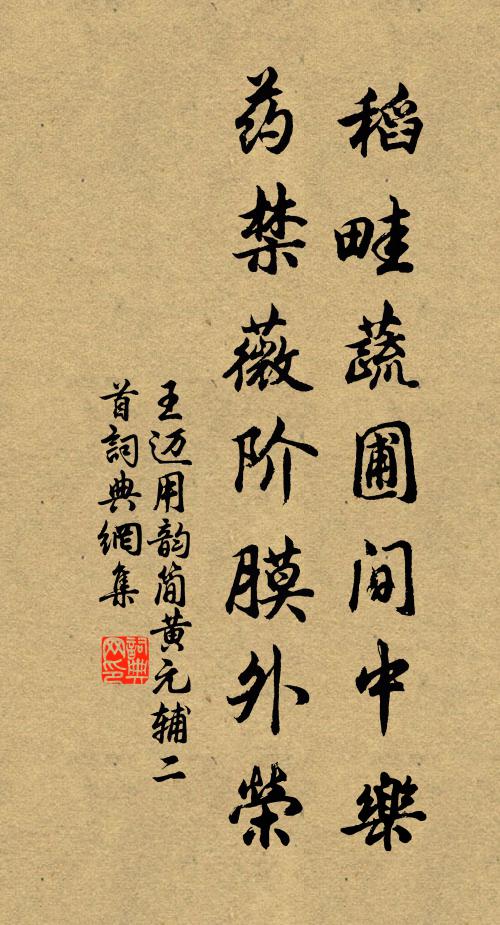 稻畦蔬圃间中樂
药禁薇阶膜外榮
王迈用韵简黄元辅二
首詞典網集
詞典
网印